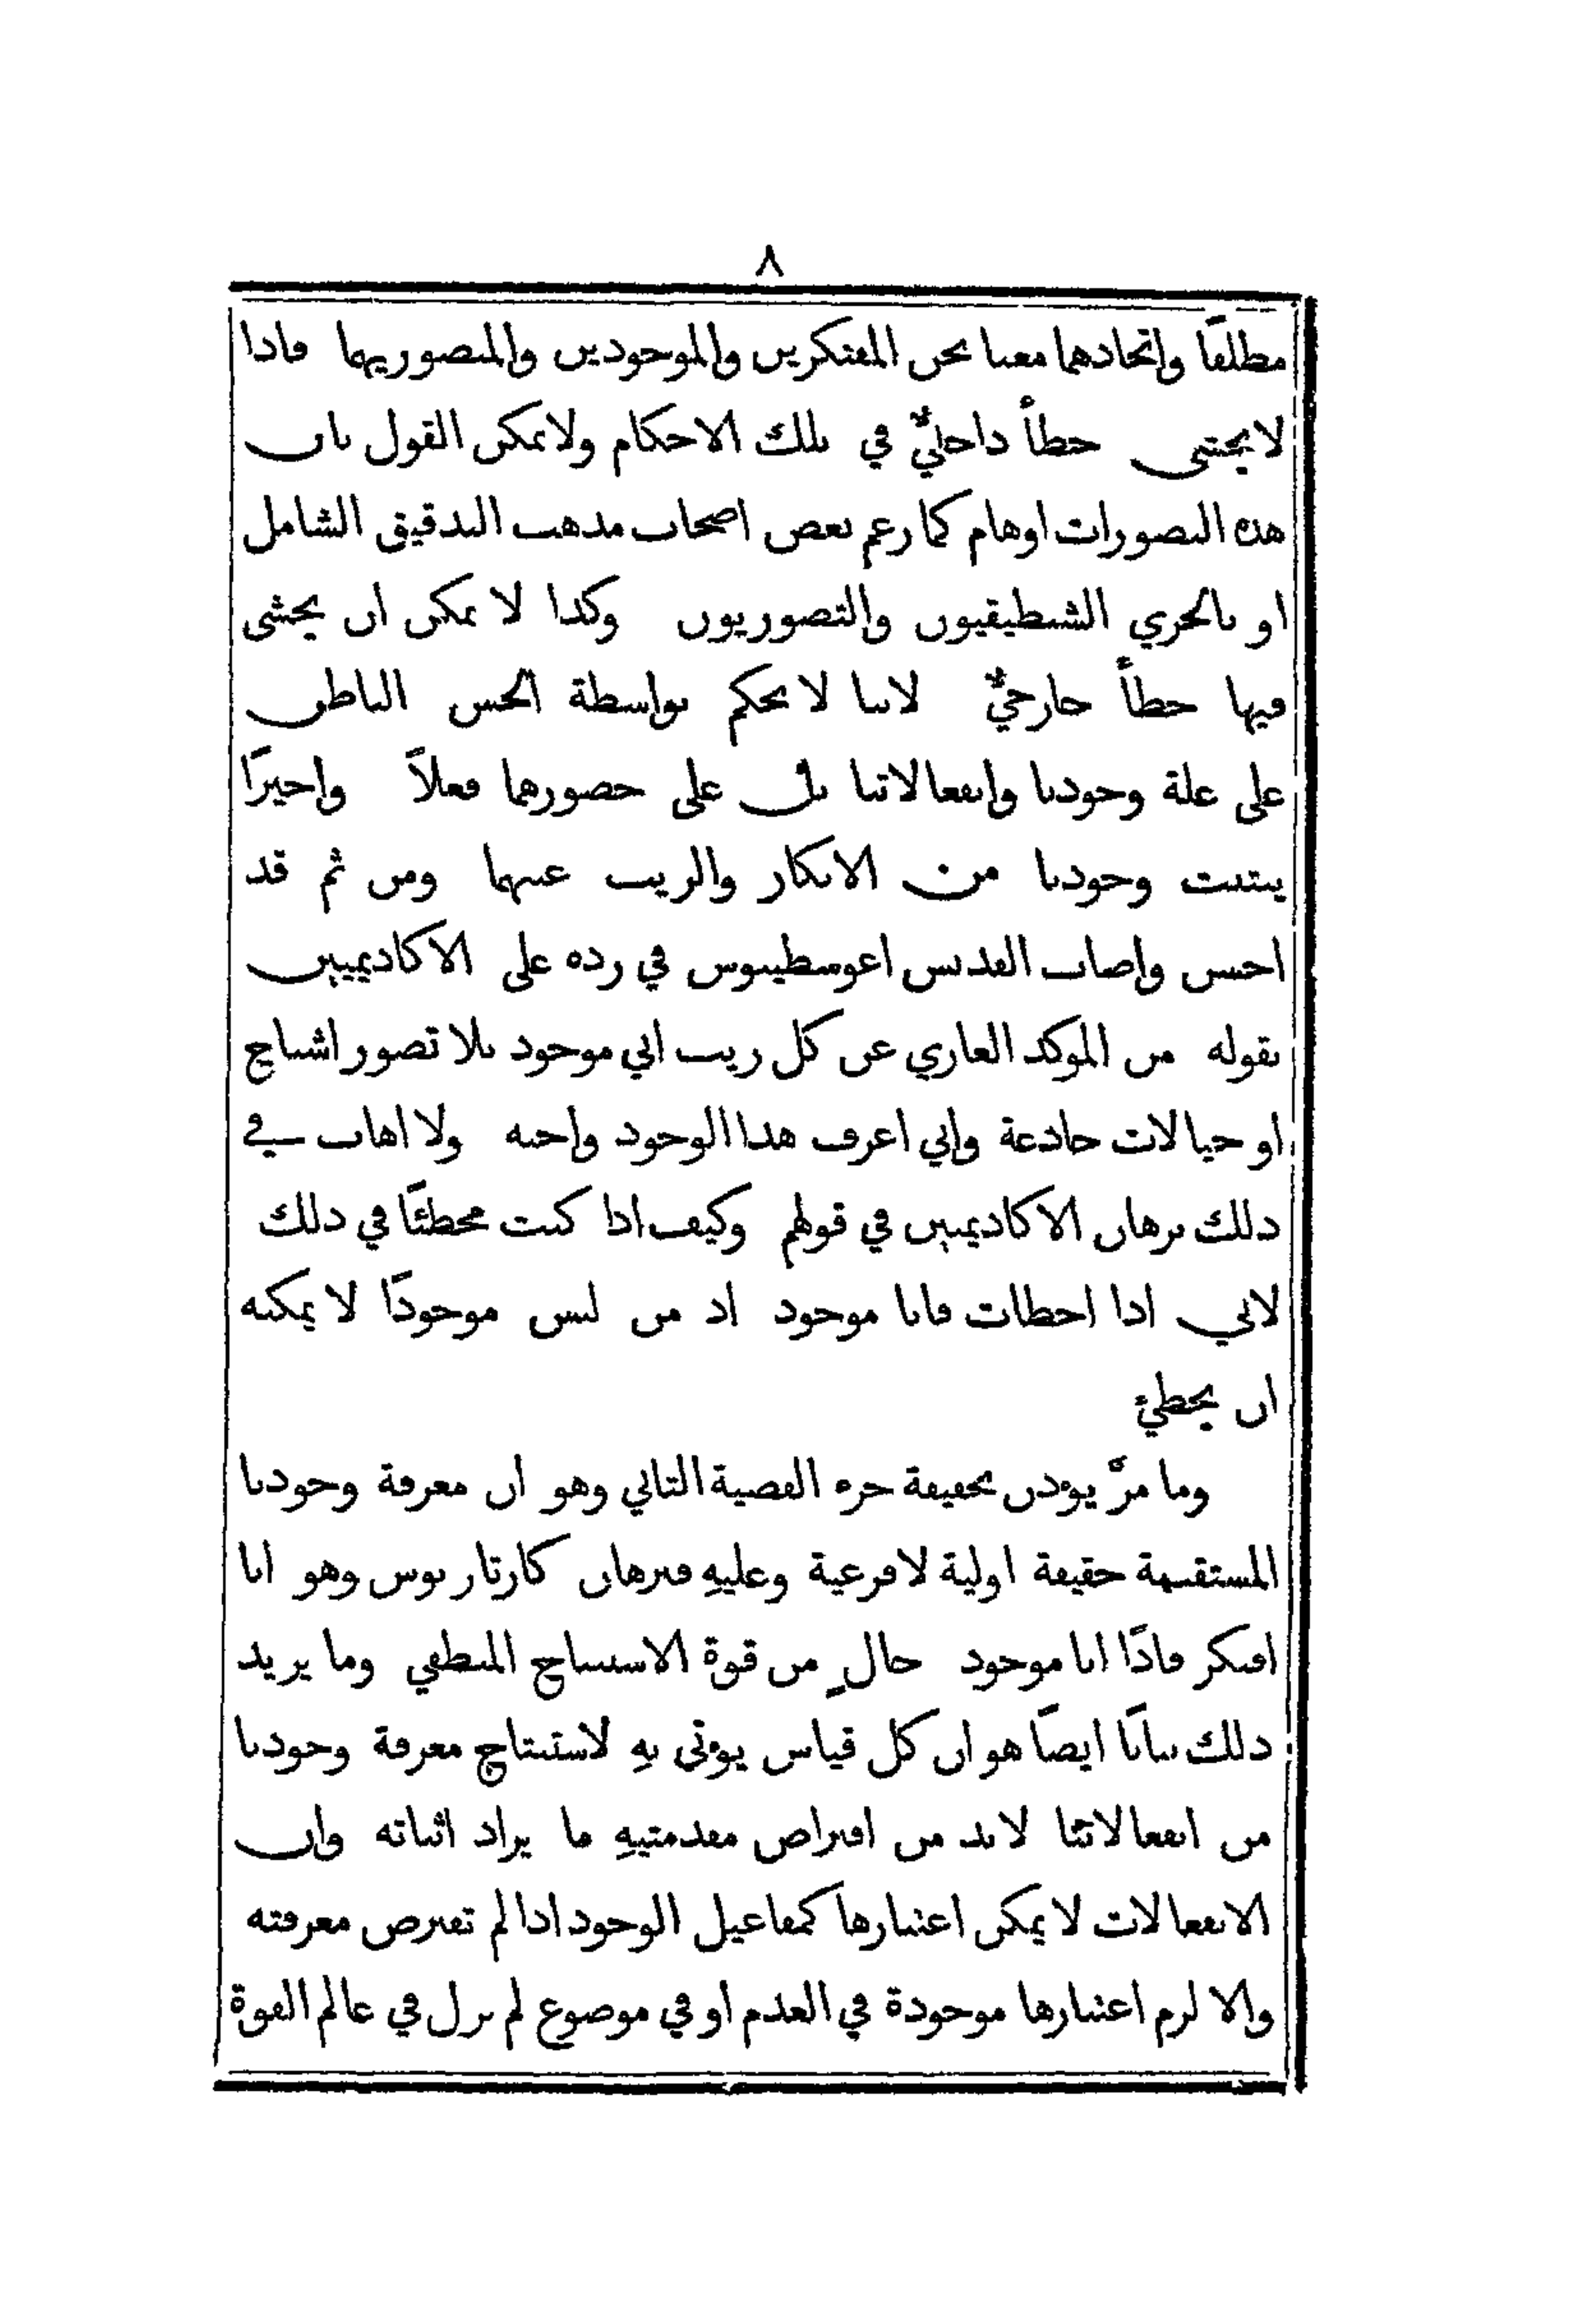 ٨
مطلقًا واتحادهما معنا نحن المفتكرين والموجودين والمتصوريهما فاذا
لا يختشى خطأ داخليٌّ في تلك الاحكام ولا يمكن القول بان
هذه التصورات اوهام كما زعم بعض اصحاب مذهب التدقيق الشامل
او بالحري الشطيقيون والتصوريون وكذا لا يمكن ان يخشى
فيها خطأ خارجيٌّ لاننا لا نحكم بواسطة الحس الباطن
على علة وجودنا وانفعالاتنا بل على حضورهما فعلاً واخيرًا
يثبت وجودنا من الانكار والريب عينهما ومن ثم قد
احسن واصاب القديس اغوسطينوس في رده على الاكاديميين
بقوله من الموكد العاري عن كل ريب اني موجود بلا تصور اشباح
او خيالات خادعة واني اعرف هذا الوجود واحبه ولا اهاب في
ذلك برهان الاكاديميين في قولهم وكيف اذا كنت مخطئًا في ذلك
لاني اذا اخطات فانا موجود اذ من ليس موجودًا لا يمكنه
ان يخطئ
وما مرَّ يوءذن بحقيقة جزء القضية الثاني وهو ان معرفة وجودنا
المستقيمة حقيقة اولية لا فرعية وعليهِ فبرهان كارتازيوس وهو انا
افتكر فاذًا انا موجود خالٍ من قوة الاستنتاج المنطقي وما يزيد
ذلك بيانًا ايضًا هو ان كل قياس يوءتى بهِ لاستنتاج معرفة وجودنا
من انفعالاتنا لا بد من افتراض مقدمتيهِ ما يراد اثباته وان
الانفعالات لا يمكن اعتبارها كمفاعيل الوجود اذا لم تفترض معرفته
والا لزم اعتبارها موجودة في العدم او في موضوع لم يزل في عالم القوة